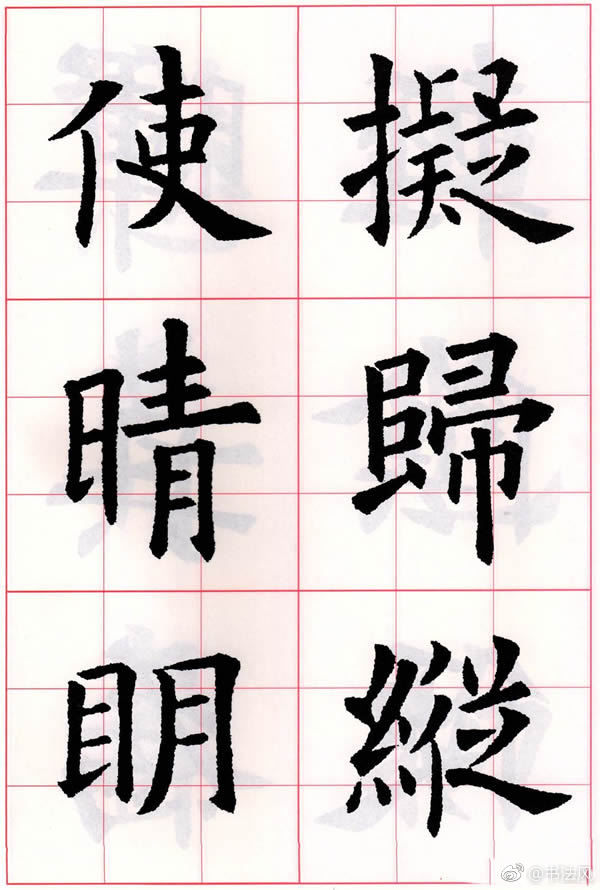 擬歸縱
使晴眀
@书法风